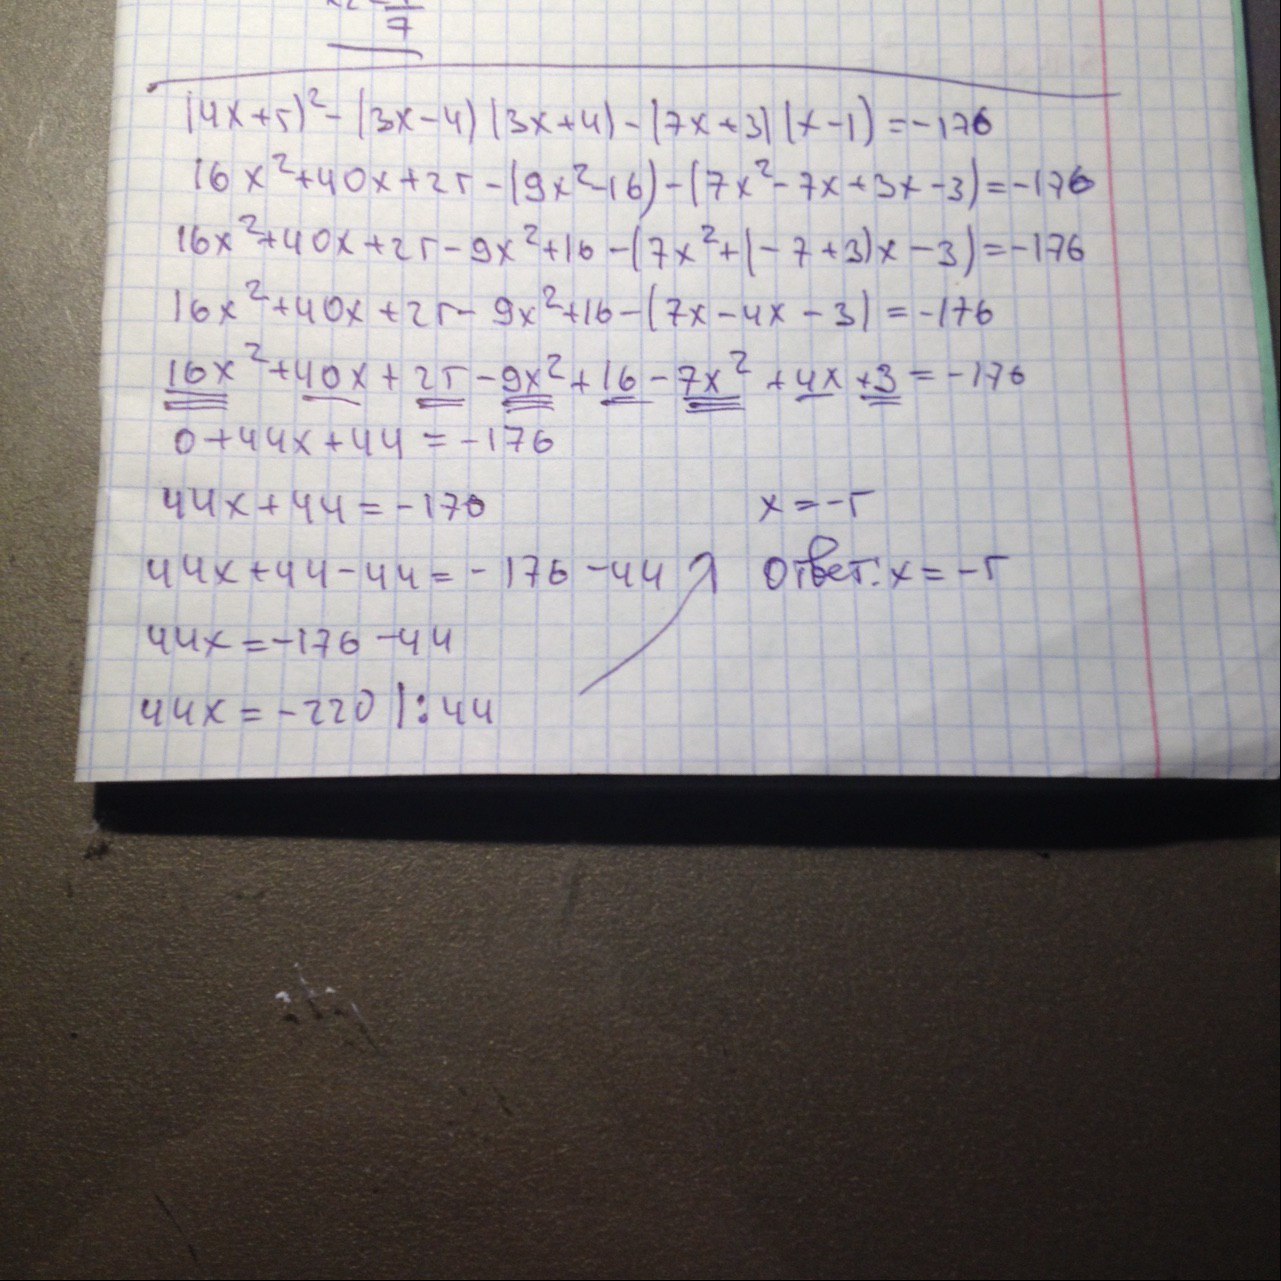 7
(4x+5)²-(3x-4)(3x+4)-(7x+3)(x-1)=-176
16x²+40x+25-(9x²-16)-(7x²-7x+3x-3)=-176
16x²+40x+25-9x²+16-(7x²+(-7+3)x-3)=-176
16x²+40x+25-9x²+16-(7x-4x-3)=-176
16x²+40x+25-9x²+16-7x²+4x+3=-176
0+44x+44=-176
44x+44=-176
44x+44-44=-176-44
44x=-176-44
44x=-220 |:44
x=-5
Ответ: x=-5